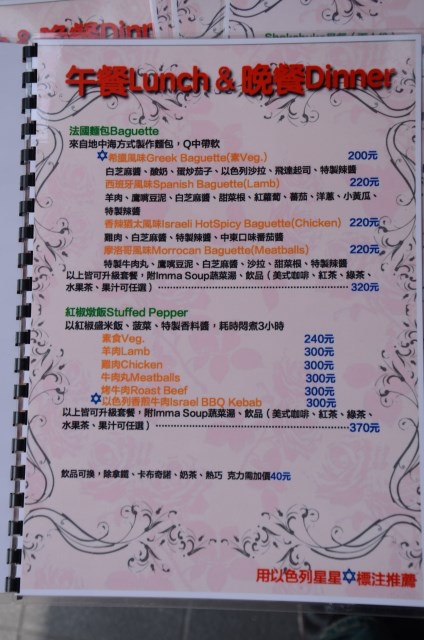 午餐Lunch & 晚餐Dinner
法國麵包Baguette
來自地中海方式製作麵包，Q中帶軟
希臘風味Greek Baguette(素Veg.) 200元
白芝麻醬、酸奶、蛋炒茄子、以色列沙拉、飛達起司、特製辣醬
西班牙風味Spanish Baguette(Lamb) 220元
羊肉、鷹嘴豆泥、白芝麻醬、甜菜根、紅蘿蔔、蕃茄、洋蔥、小黃瓜、
特製辣醬
香辣猶太風味Israeli HotSpicy Baguette(Chicken) 220元
雞肉、白芝麻醬、特製辣醬、中東口味蕃茄醬
摩洛哥風味Morrocan Baguette(Meatballs) 220元
特製牛肉丸、鷹嘴豆泥、白芝麻醬、沙拉、甜菜根、特製辣醬
以上皆可升級套餐，附Imma Soup蔬菜湯、飲品（美式咖啡、紅茶、綠茶、
水果茶、果汁可任選） 320元
紅椒燉飯Stuffed Pepper
以紅椒盛米飯、菠菜、特製香料醬，耗時悶煮3小時
素食Veg. 240元
羊肉Lamb 300元
雞肉Chicken 300元
牛肉丸Meatballs 300元
烤牛肉Roast Beef 300元
以色列香煎牛肉Israel BBQ Kebab 300元
以上皆可升級套餐，附Imma Soup蔬菜湯、飲品（美式咖啡、紅茶、綠茶、
水果茶、果汁可任選） 370元
飲品可換，除拿鐵、卡布奇諾、奶茶、熱巧 克力需加價40元
用以色列星星✡標注推薦